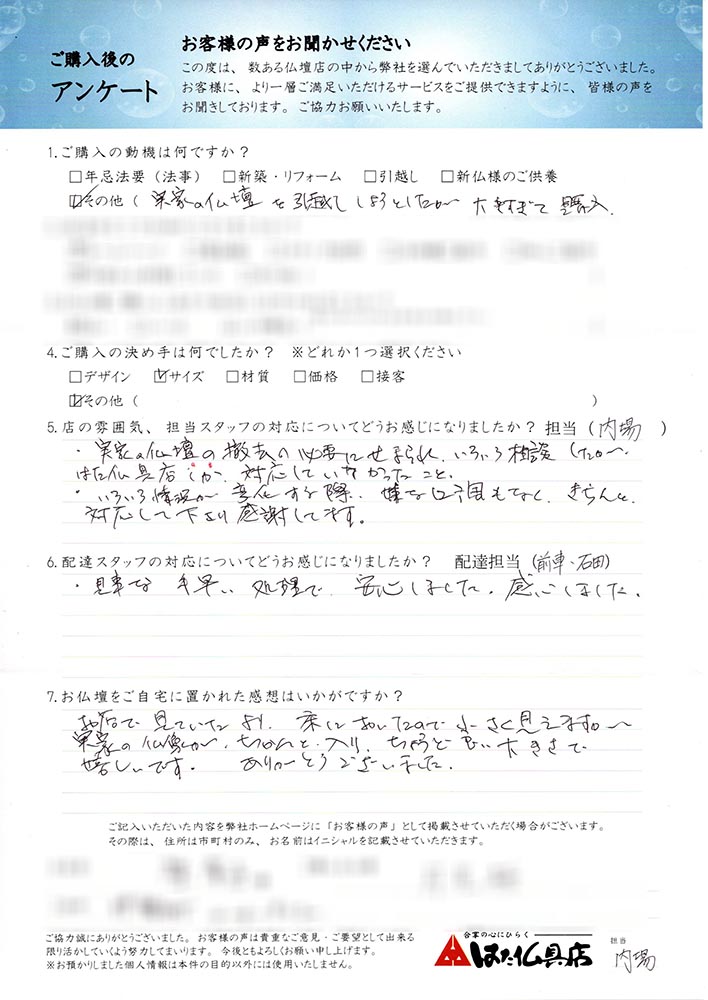 ご購入後の
アンケート
お客様の声をお聞かせください
この度は、数ある仏壇店の中から弊社を選んでいただきましてありがとうございました。
お客様に、より一層ご満足いただけるサービスをご提供できますように、皆様の声を
お聞きしております。ご協力お願いいたします。
1.ご購入の動機は何ですか？
□年忌法要（法事） □新築・リフォーム □引越し □新仏様のご供養
☑その他（ 実家の仏壇を引越ししようとしたが 大きすぎて購入.
4.ご購入の決め手は何でしたか？ ※どれか1つ選択ください
□デザイン ☑サイズ □材質 □価格 □接客
☑その他（ ）
5.店の雰囲気、担当スタッフの対応についてどうお感じになりましたか？担当（内場 ）
・実家の仏壇の撤去の必要にせまられ、いろいろ相談したが〜
はた仏具店しか、対応していなかったこと.
・いろいろ情況が変化する際、嫌な口調もなく、きちんと
対応して下さり感謝してます。
6.配達スタッフの対応についてどうお感じになりましたか？ 配達担当（前車・石田）
・見事な手早い処理で、安心しました。感心しました.
7.お仏壇をご自宅に置かれた感想はいかがですか？
お店で見ていたより、床においたので小さく見えますが〜
実家の仏像が、ちゃんと入り、ちょうど良い大きさで
嬉しいです。 ありがとうございました.
ご記入いただいた内容を弊社ホームページに「お客様の声」として掲載させていただく場合がございます。
その際は、住所は市町村のみ、お名前はイニシャルを記載させていただきます。
ご協力誠にありがとうございました。お客様の声は貴重なご意見・ご要望として出来る
限り活かしていくよう努力してまいります。今後ともよろしくお願い申し上げます。
※お預かりしました個人情報は本件の目的以外には使用いたしません。
合掌の心にひらく
はた仏具店
担当
内場